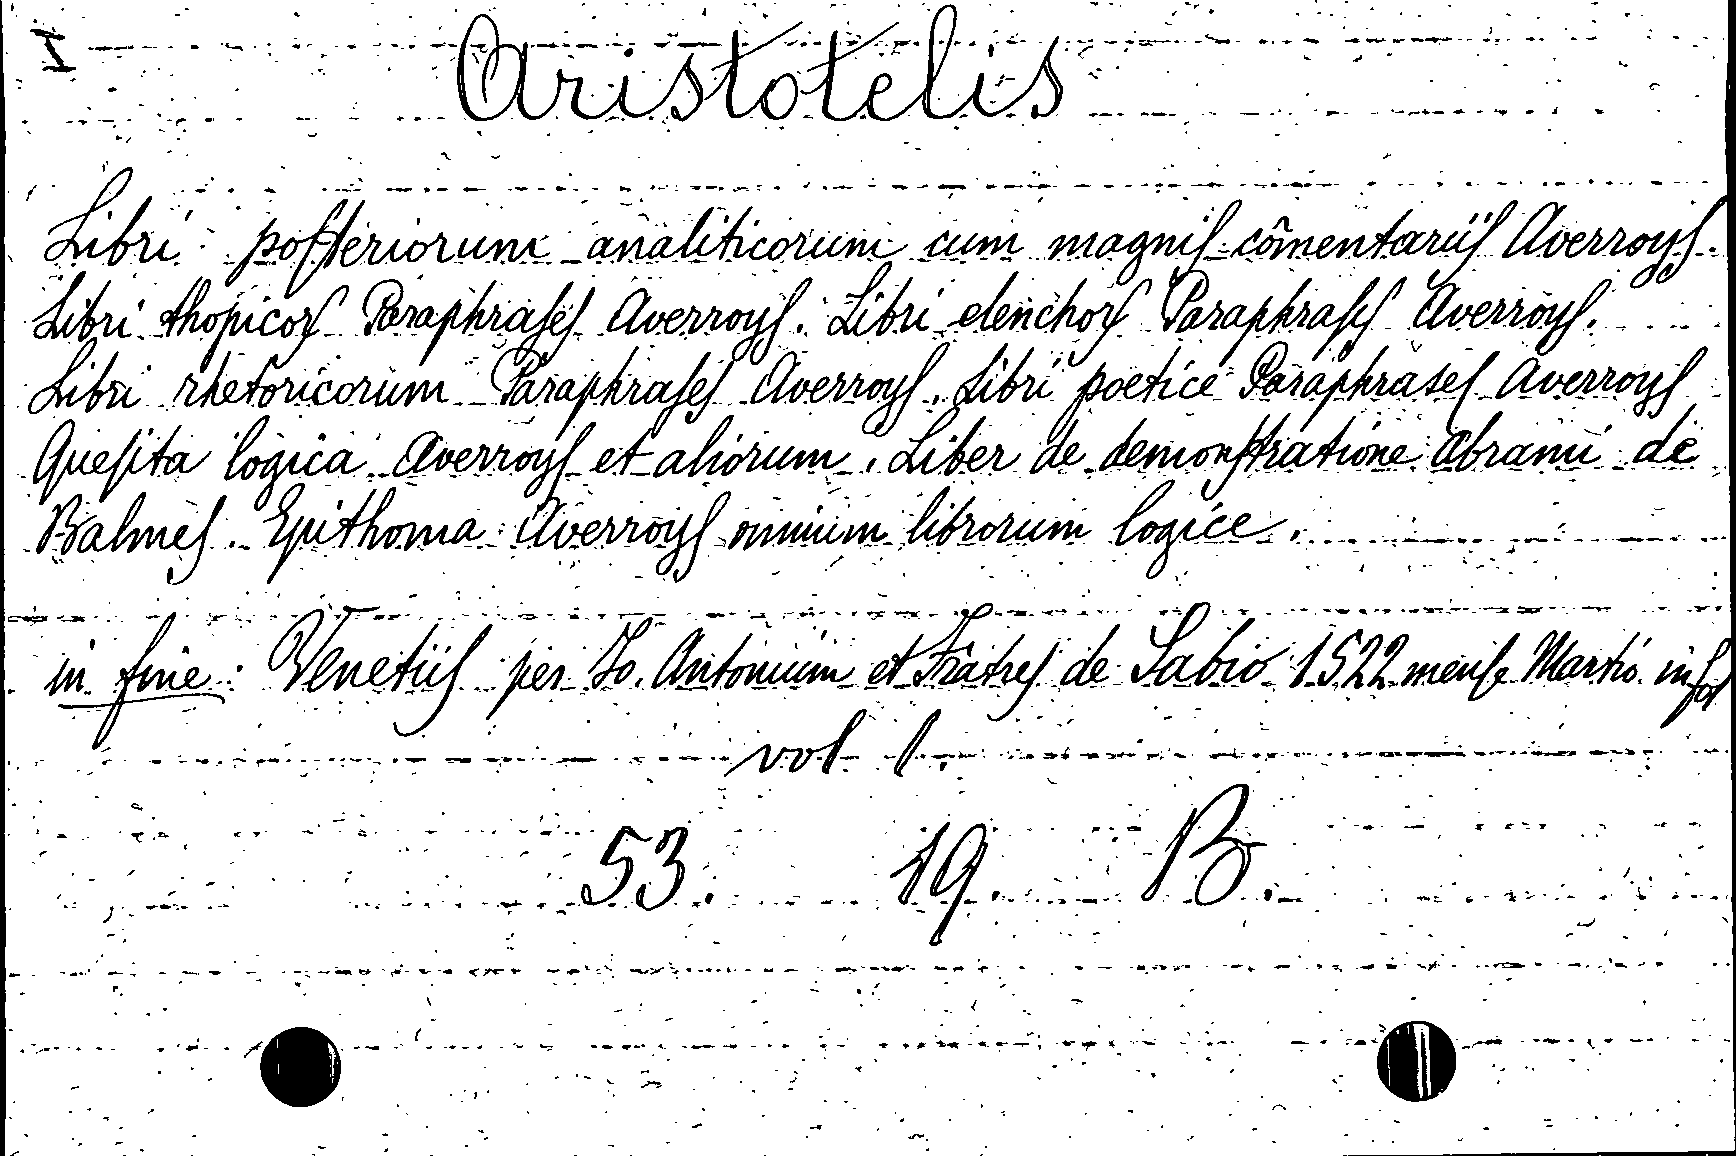 I
Aristotelis
Libri poſteriorum analiticorum cum magniſ cômentariiſ Averroyſ.
Libri thopicoꝝ Paraphraſeſ Averroyſ. Libri elenchoꝝ Paraphraſeſ Averroyſ.
Libri rhetoricorum Paraphraſeſ Averroyſ. Libri poetice Paraphraseſ Averroyſ
Queſita logica Averroyſ et aliorum. Liber de demonſtratione Abrami de
Balmeſ. Epithoma Averroyſ omnium librorum logice.
in fine: Venetiiſ per Jo. Antonium et Fratreſ de Sabio 1522 menſe Martio. in fol
vol 1.
53. 19. B.